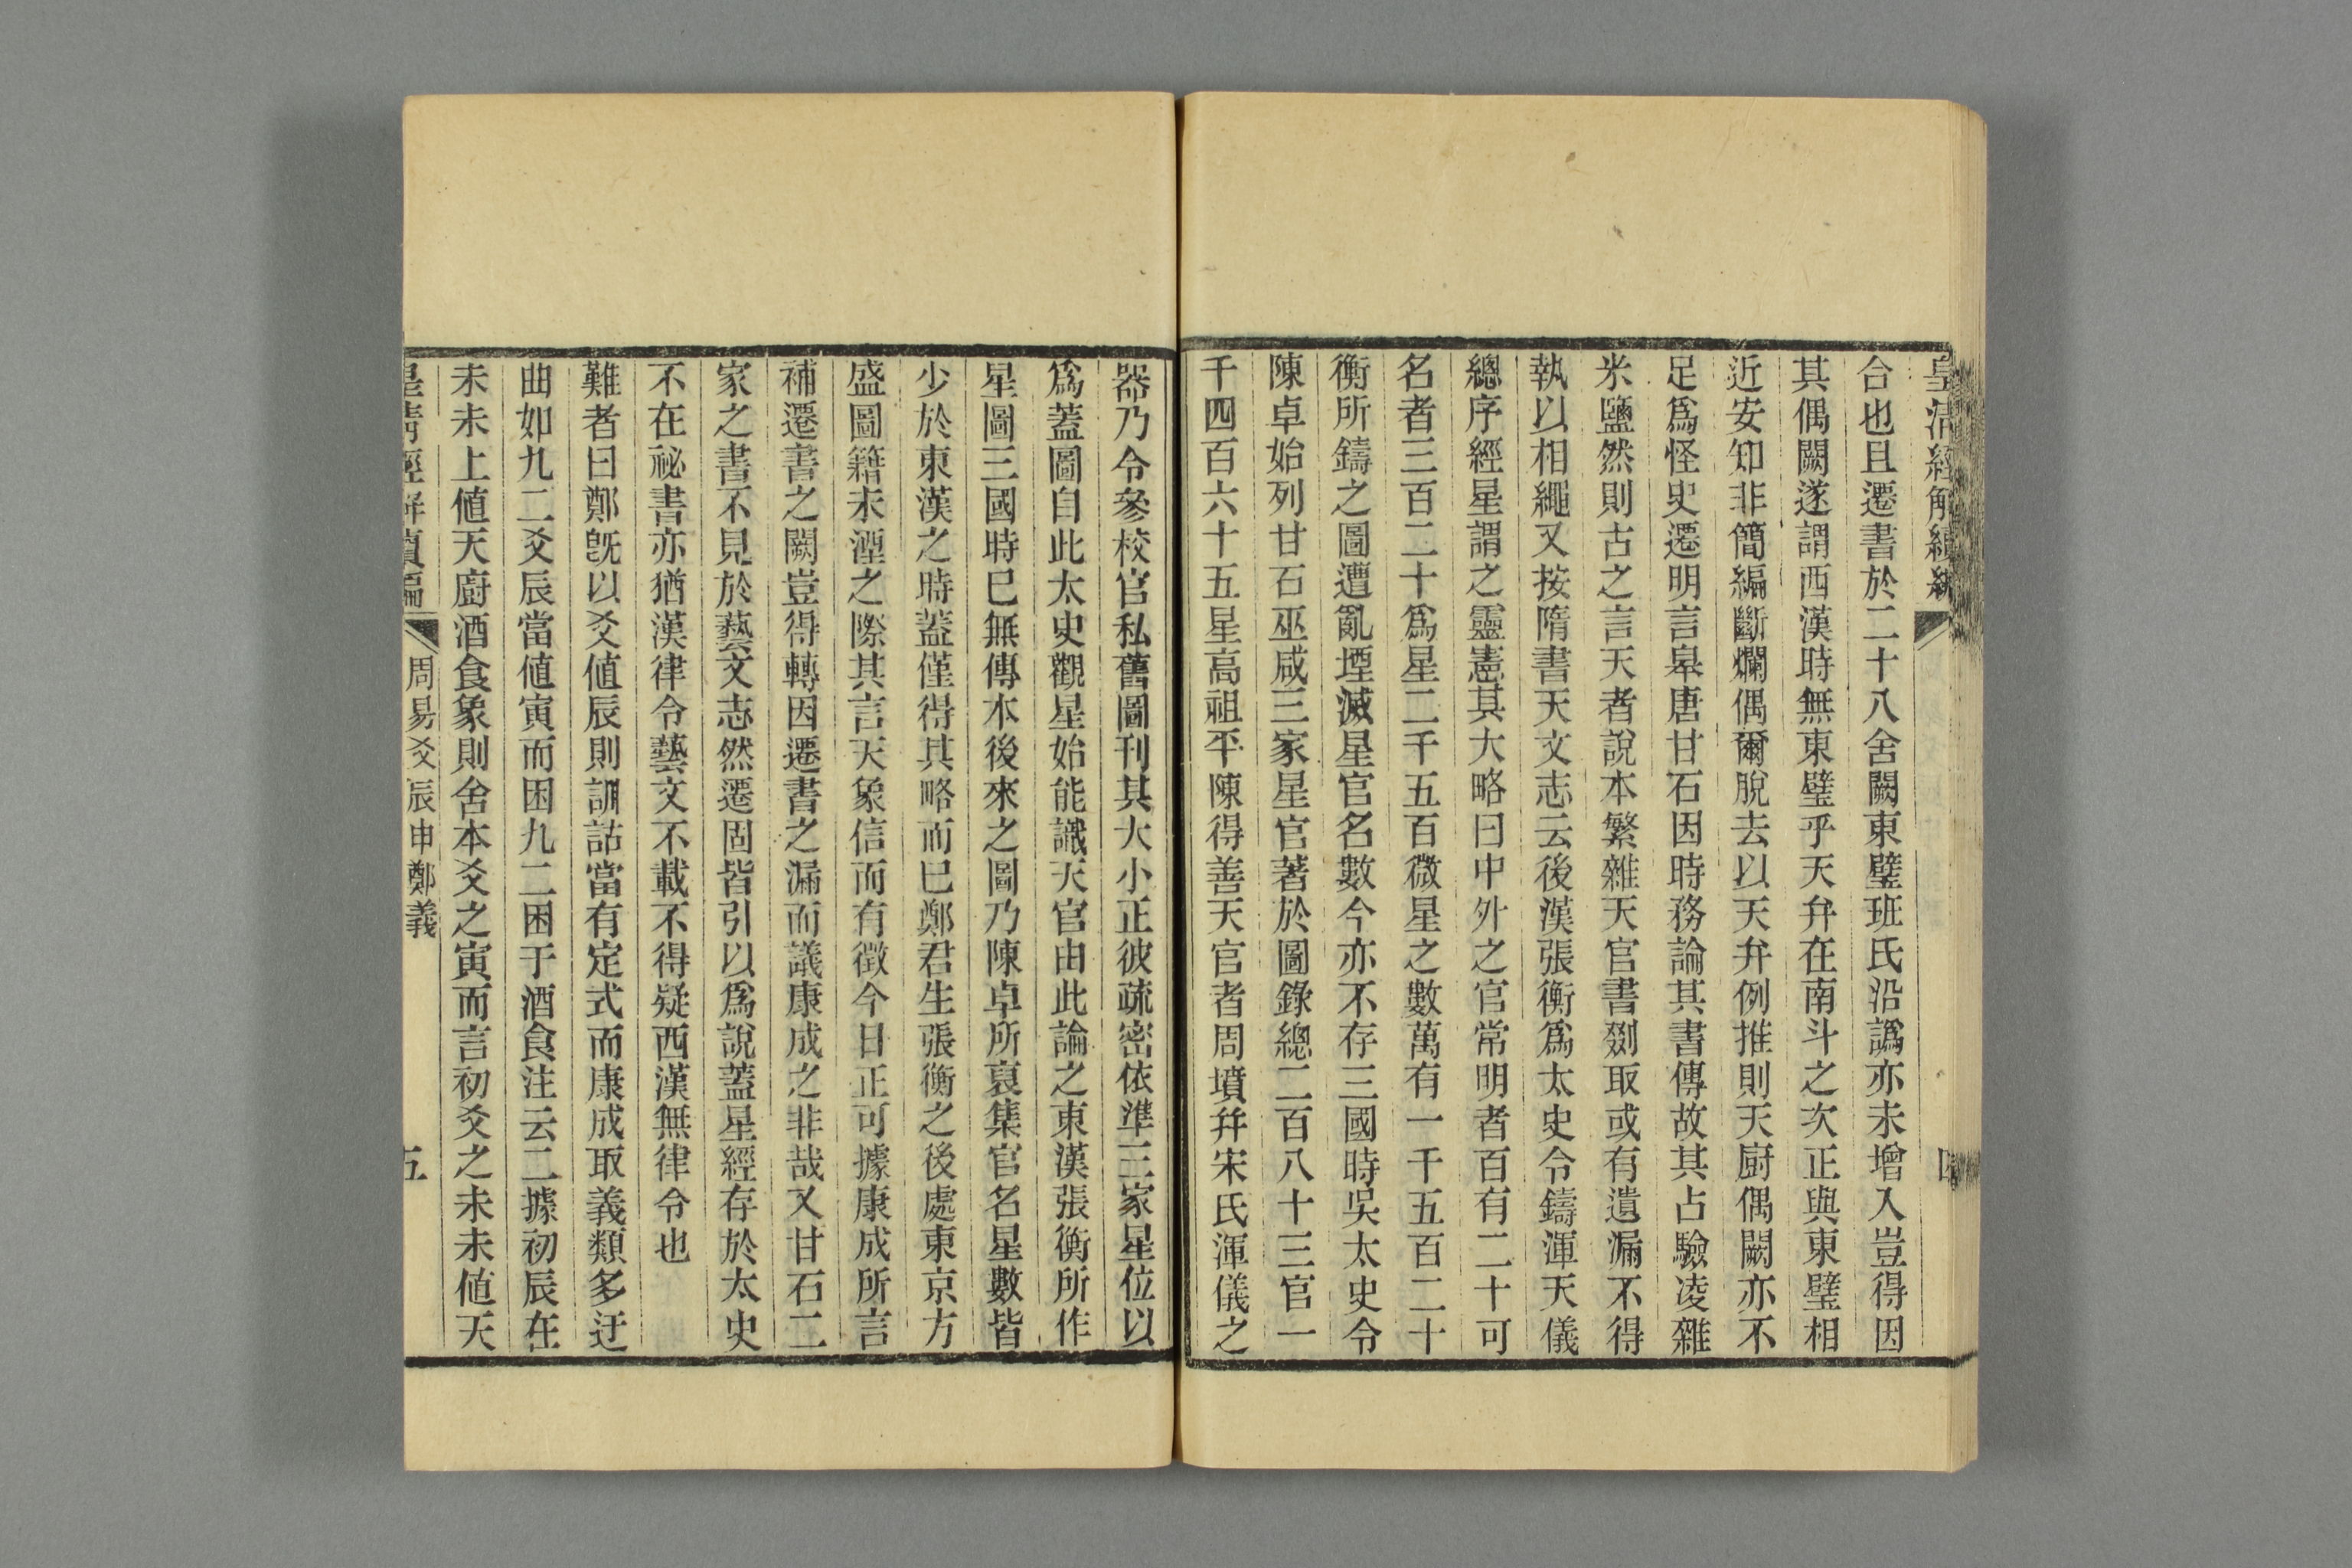 皇清經解續編
四
合也且遷書於二十八舍闕東璧班氏沿譌亦未增入豈得因
其偶闕遂謂西漢時無東璧乎天弁在南斗之次正與東璧相
近安知非簡編斷爛偶爾脫去以天弁例推則天廚偶闕亦不
足爲怪史遷明言皋唐甘石因時務論其書傳故其占驗凌雜
米鹽然則古之言天者說本繁雜天官書剟取或有遺漏不得
執以相繩又按隋書天文志云後漢張衡爲太史令鑄渾天儀
總序經星謂之靈憲其大略曰中外之官常明者百有二十可
名者三百二十爲星二千五百微星之數萬有一千五百二十
衡所鑄之圖遭亂堙滅星官名數今亦不存三國時吳太史令
陳卓始列甘石巫咸三家星官著於圖錄總二百八十三官一
千四百六十五星高祖平陳得善天官者周墳幷宋氏渾儀之
器乃令參校官私舊圖刊其大小正彼疏密依準三家星位以
爲蓋圖自此太史觀星始能識天官由此論之東漢張衡所作
星圖三國時已無傳本後來之圖乃陳卓所裒集官名星數皆
少於東漢之時蓋僅得其略而已鄭君生張衡之後處東京方
盛圖籍未湮之際其言天象信而有徵今日正可據康成所言
補遷書之闕豈得轉因遷書之漏而議康成之非哉又甘石二
家之書不見於藝文志然遷固皆引以爲說蓋星經存於太史
不在祕書亦猶漢律令藝文不載不得疑西漢無律令也
難者曰鄭旣以爻値辰則訓詁當有定式而康成取義類多迂
曲如九二爻辰當値寅而困九二困于酒食注云二據初辰在
未未上値天廚酒食象則舍本爻之寅而言初爻之未未値天
皇清經解續編
周易爻辰申鄭義
五